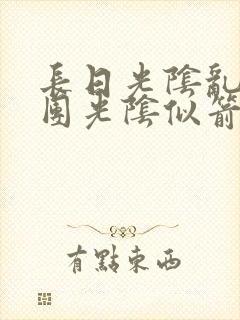 長日光陰亂
團光陰似箭
有點東西